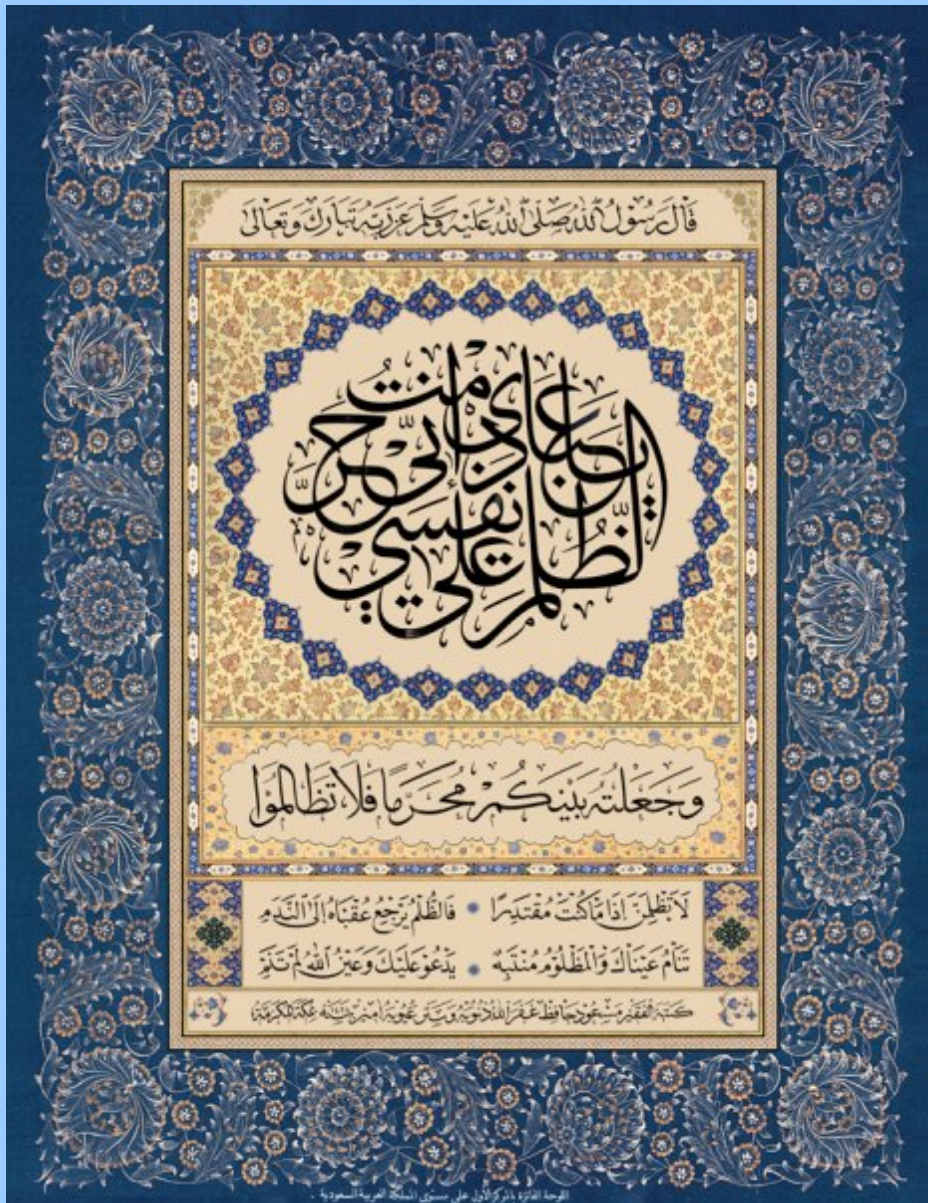 قَالَ رَسُولُ اللهِ صَلَّى اللهُ عَلَيْهِ وَسَلَّمَ عَنْ رَبِّهِ تَبَارَكَ وَتَعَالَى
يَا عِبَادِي إِنِّي حَرَّمْتُ
الظُّلْمَ عَلَى نَفْسِي
وَجَعَلْتُهُ بَيْنَكُمْ مُحَرَّمًا فَلَا تَظَالَمُوا
لَا تَظْلِمَنَّ إِذَا مَا كُنْتَ مُقْتَدِرًا • فَالظُّلْمُ يَرْجِعُ عُقْبَاهُ إِلَى النَّدَمِ
تَنَامُ عَيْنَاكَ وَالْمَظْلُومُ مُنْتَبِهٌ • يَدْعُو عَلَيْكَ وَعَيْنُ اللهِ لَمْ تَنَمْ
كتبه الفقير مسعود حافظ غفر الله ذنوبه وستر عيوبه آمين بمكة المكرمة
اللوحة الفائزة بالمركز الأول على مستوى المملكة العربية السعودية .